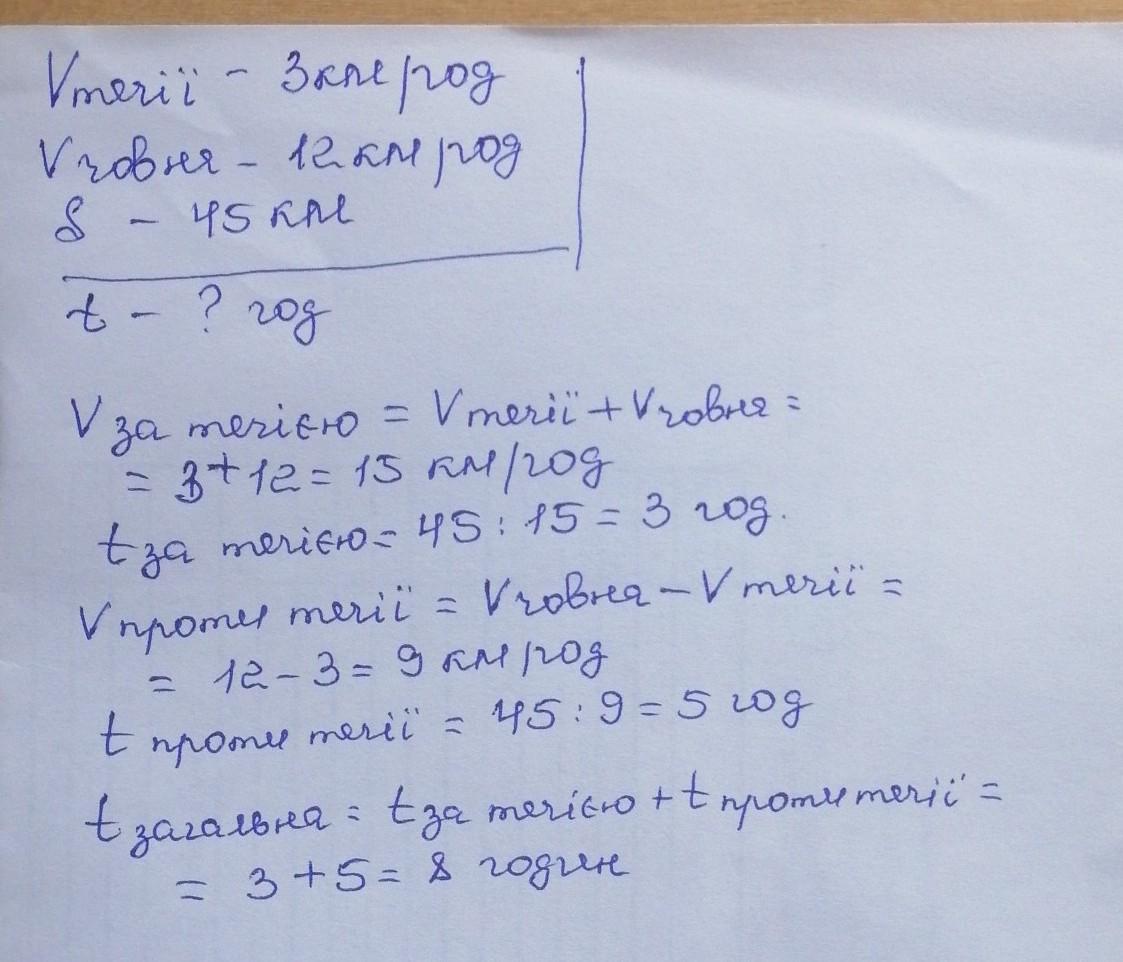 Vтечії - 3км/год
Vчовня - 12 км/год
S - 45 км
t - ? год
V за течією = Vтечії + Vчовня =
= 3 + 12 = 15 км/год
t за течією = 45 : 15 = 3 год.
V проти течії = Vчовня - V течії =
= 12 - 3 = 9 км/год
t проти течії = 45 : 9 = 5 год
t загальна = t за течією + t проти течії =
= 3 + 5 = 8 годин